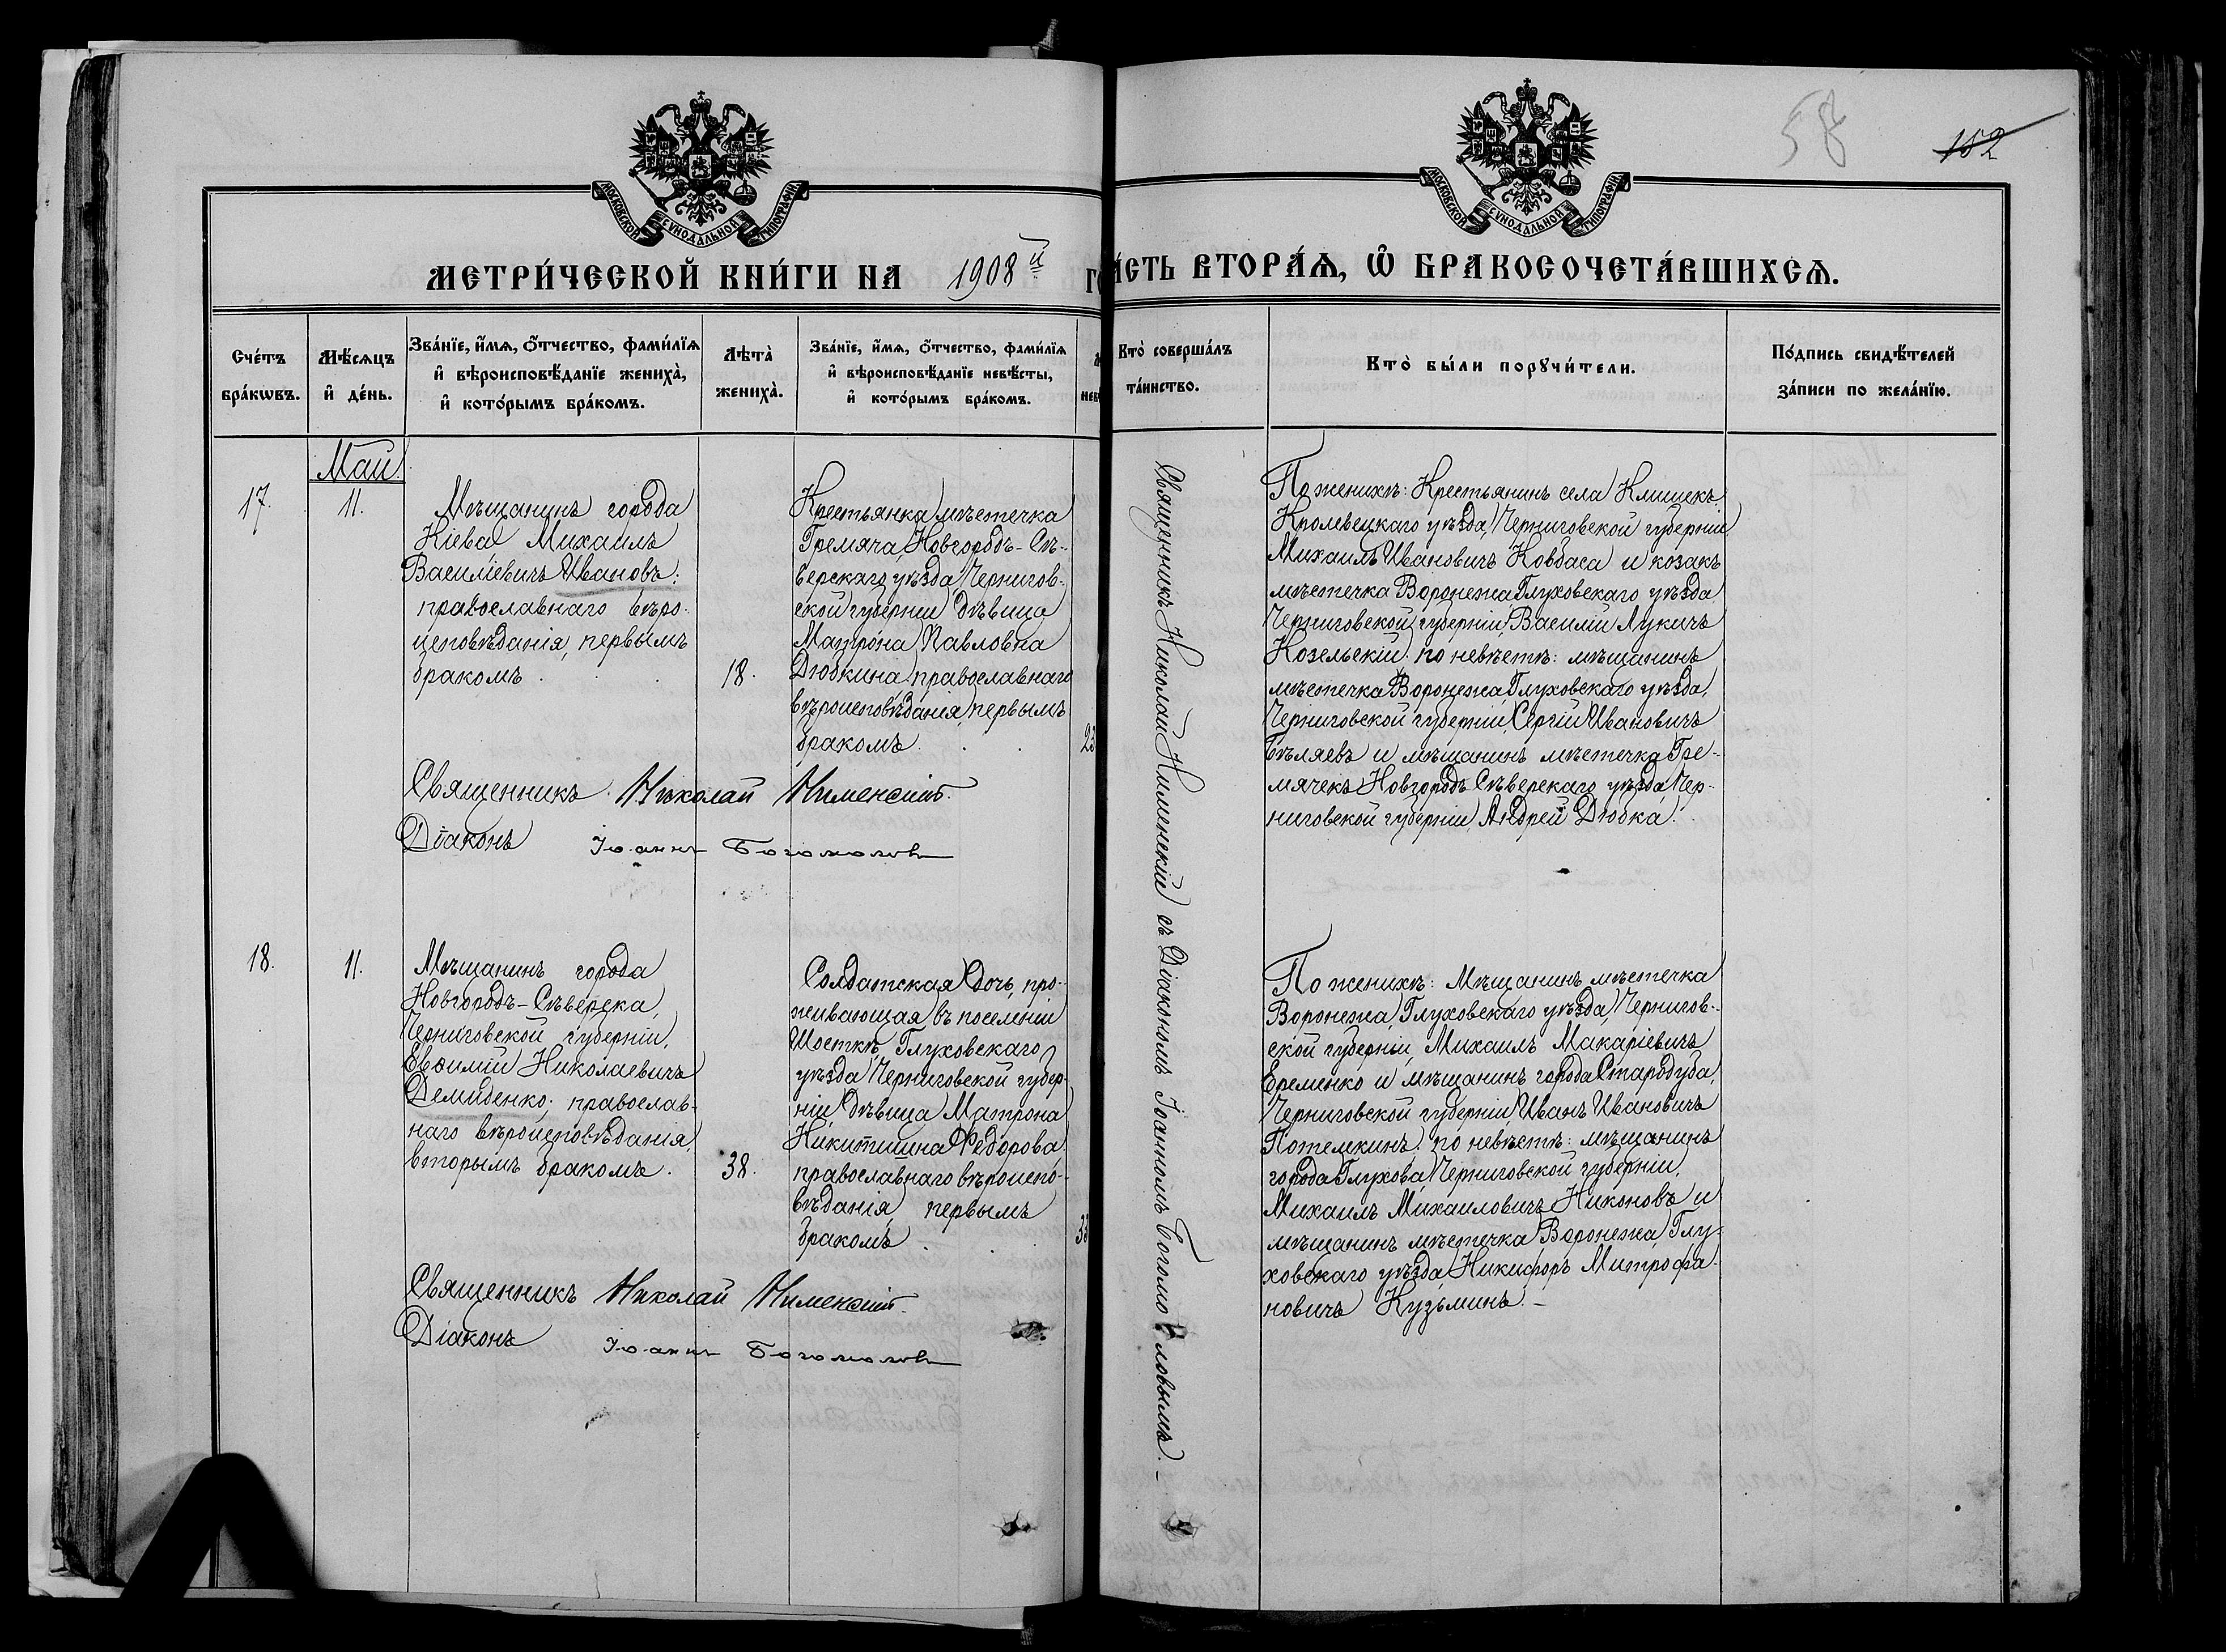 58
152
МОСКОВСКОЙ СѴНОДАЛЬНОЙ ТИПОГРАФІИ
МОСКОВСКОЙ СѴНОДАЛЬНОЙ ТИПОГРАФІИ
МЕТРИ́ЧЕСКОЙ КНИ́ГИ НА 1908й
ЧА́СТЬ ВТОРА́Ѧ, Ѽ БРАКОСОЧЕТА́ВШИХСѦ.
Сче́тъ
бра́кѡвъ.
Мѣ́сѧцъ
и҆ де́нь.
Зва́нїе, и҆́мѧ, о҆́тчество, фами́лїѧ
и҆ вѣроисповѣ́данїе жениха̀,
и҆ кото́рымъ бра́комъ.
Лѣта̀
жениха̀.
Зва́нїе, и҆́мѧ, о҆́тчество, фами́лїѧ
и҆ вѣроисповѣ́данїе невѣ́сты,
и҆ кото́рымъ бра́комъ.
Кто̀ соверша́лъ
та́инство.
Кто̀ бы́ли порꙋчи́тели.
По́дпись свидѣ́телей
за́писи по жела́нїю.
Май.
17.
11.
Мѣщанинъ города
Кіева Михаилъ
Василіевичъ Ивановъ;
православнаго вѣро-
исповѣданія, первымъ
бракомъ.
18.
Крестьянка мѣстечка
Гремяча, Новгородъ-Сѣ-
верскаго уѣзда, Чернигов-
ской губерніи дѣвица
Матрона Павловна
Дюбкина, православнаго
вѣроисповѣданія, первымъ
бракомъ.
23
Священникъ Николай Нименскій.
Діаконъ Іоаннъ Богомоловъ
Священникъ Николай Нименскій съ Діакономъ Іоанномъ Богомоловымъ. –
По женихѣ: Крестьянинъ села Клишекъ,
Кролевецкаго уѣзда, Черниговской губерніи,
Михаилъ Ивановичъ Ковбаса и козакъ
мѣстечка Воронежа, Глуховскаго уѣзда,
Черниговской губерніи, Василій Лукичъ
Козельскій; по невѣстѣ: мѣщанинъ
мѣстечка Воронежа, Глуховскаго уѣзда,
Черниговской губерніи, Сергій Ивановичъ
Бѣляевъ и мѣщанинъ мѣстечка Гре-
мячекъ Новгородъ Сѣверскаго уѣзда, Чер-
ниговской губерніи, Андрей Дюбка.
18.
11.
Мѣщанинъ города
Новгородъ-Сѣверска,
Черниговской губерніи,
Евѳимій Николаевичъ
Демиденко; православ-
наго вѣроисповѣданія,
вторымъ бракомъ.
38.
Солдатская дочь, про-
живающая въ поселеніи
Шосткѣ, Глуховскаго
уѣзда, Черниговской губер-
ніи дѣвица Матрона
Никитина Ѳедорова,
православнаго вѣроиспо-
вѣданія, первымъ
бракомъ.
33
Священникъ Николай Нименскій.
Діаконъ Іоаннъ Богомоловъ
По женихѣ: Мѣщанинъ мѣстечка
Воронежа, Глуховскаго уѣзда, Чернигов-
ской губерніи, Михаилъ Макаріевичъ
Еременко и мѣщанинъ города Стародуба,
Черниговской губерніи, Иванъ Ивановичъ
Потемкинъ; по невѣстѣ: мѣщанинъ
города Глухова, Черниговской губерніи,
Михаилъ Михаиловичъ Никоновъ и
мѣщанинъ мѣстечка Воронежа, Глу-
ховскаго уѣзда, Никифоръ Митрофа-
новичъ Кузьминъ. –